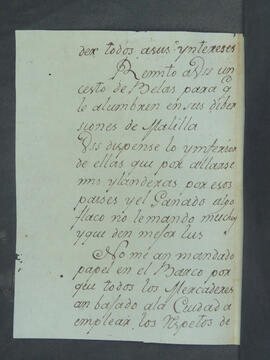 der todos asus yntereses
Remito a Vss un
cesto de Belas para q
le alumbren en sus diber
siones de Malilla
Vss dispense lo ynferior
de ellas que por allarse
mis ylanderas por esos
paises y el Ganado algo
flaco no le mando muchas
y que den mejor lus
No me an mandado
papel en el Barco por
que todos los Mercaderes
an bajado ala Ciudad a
emplear, los Respetos de